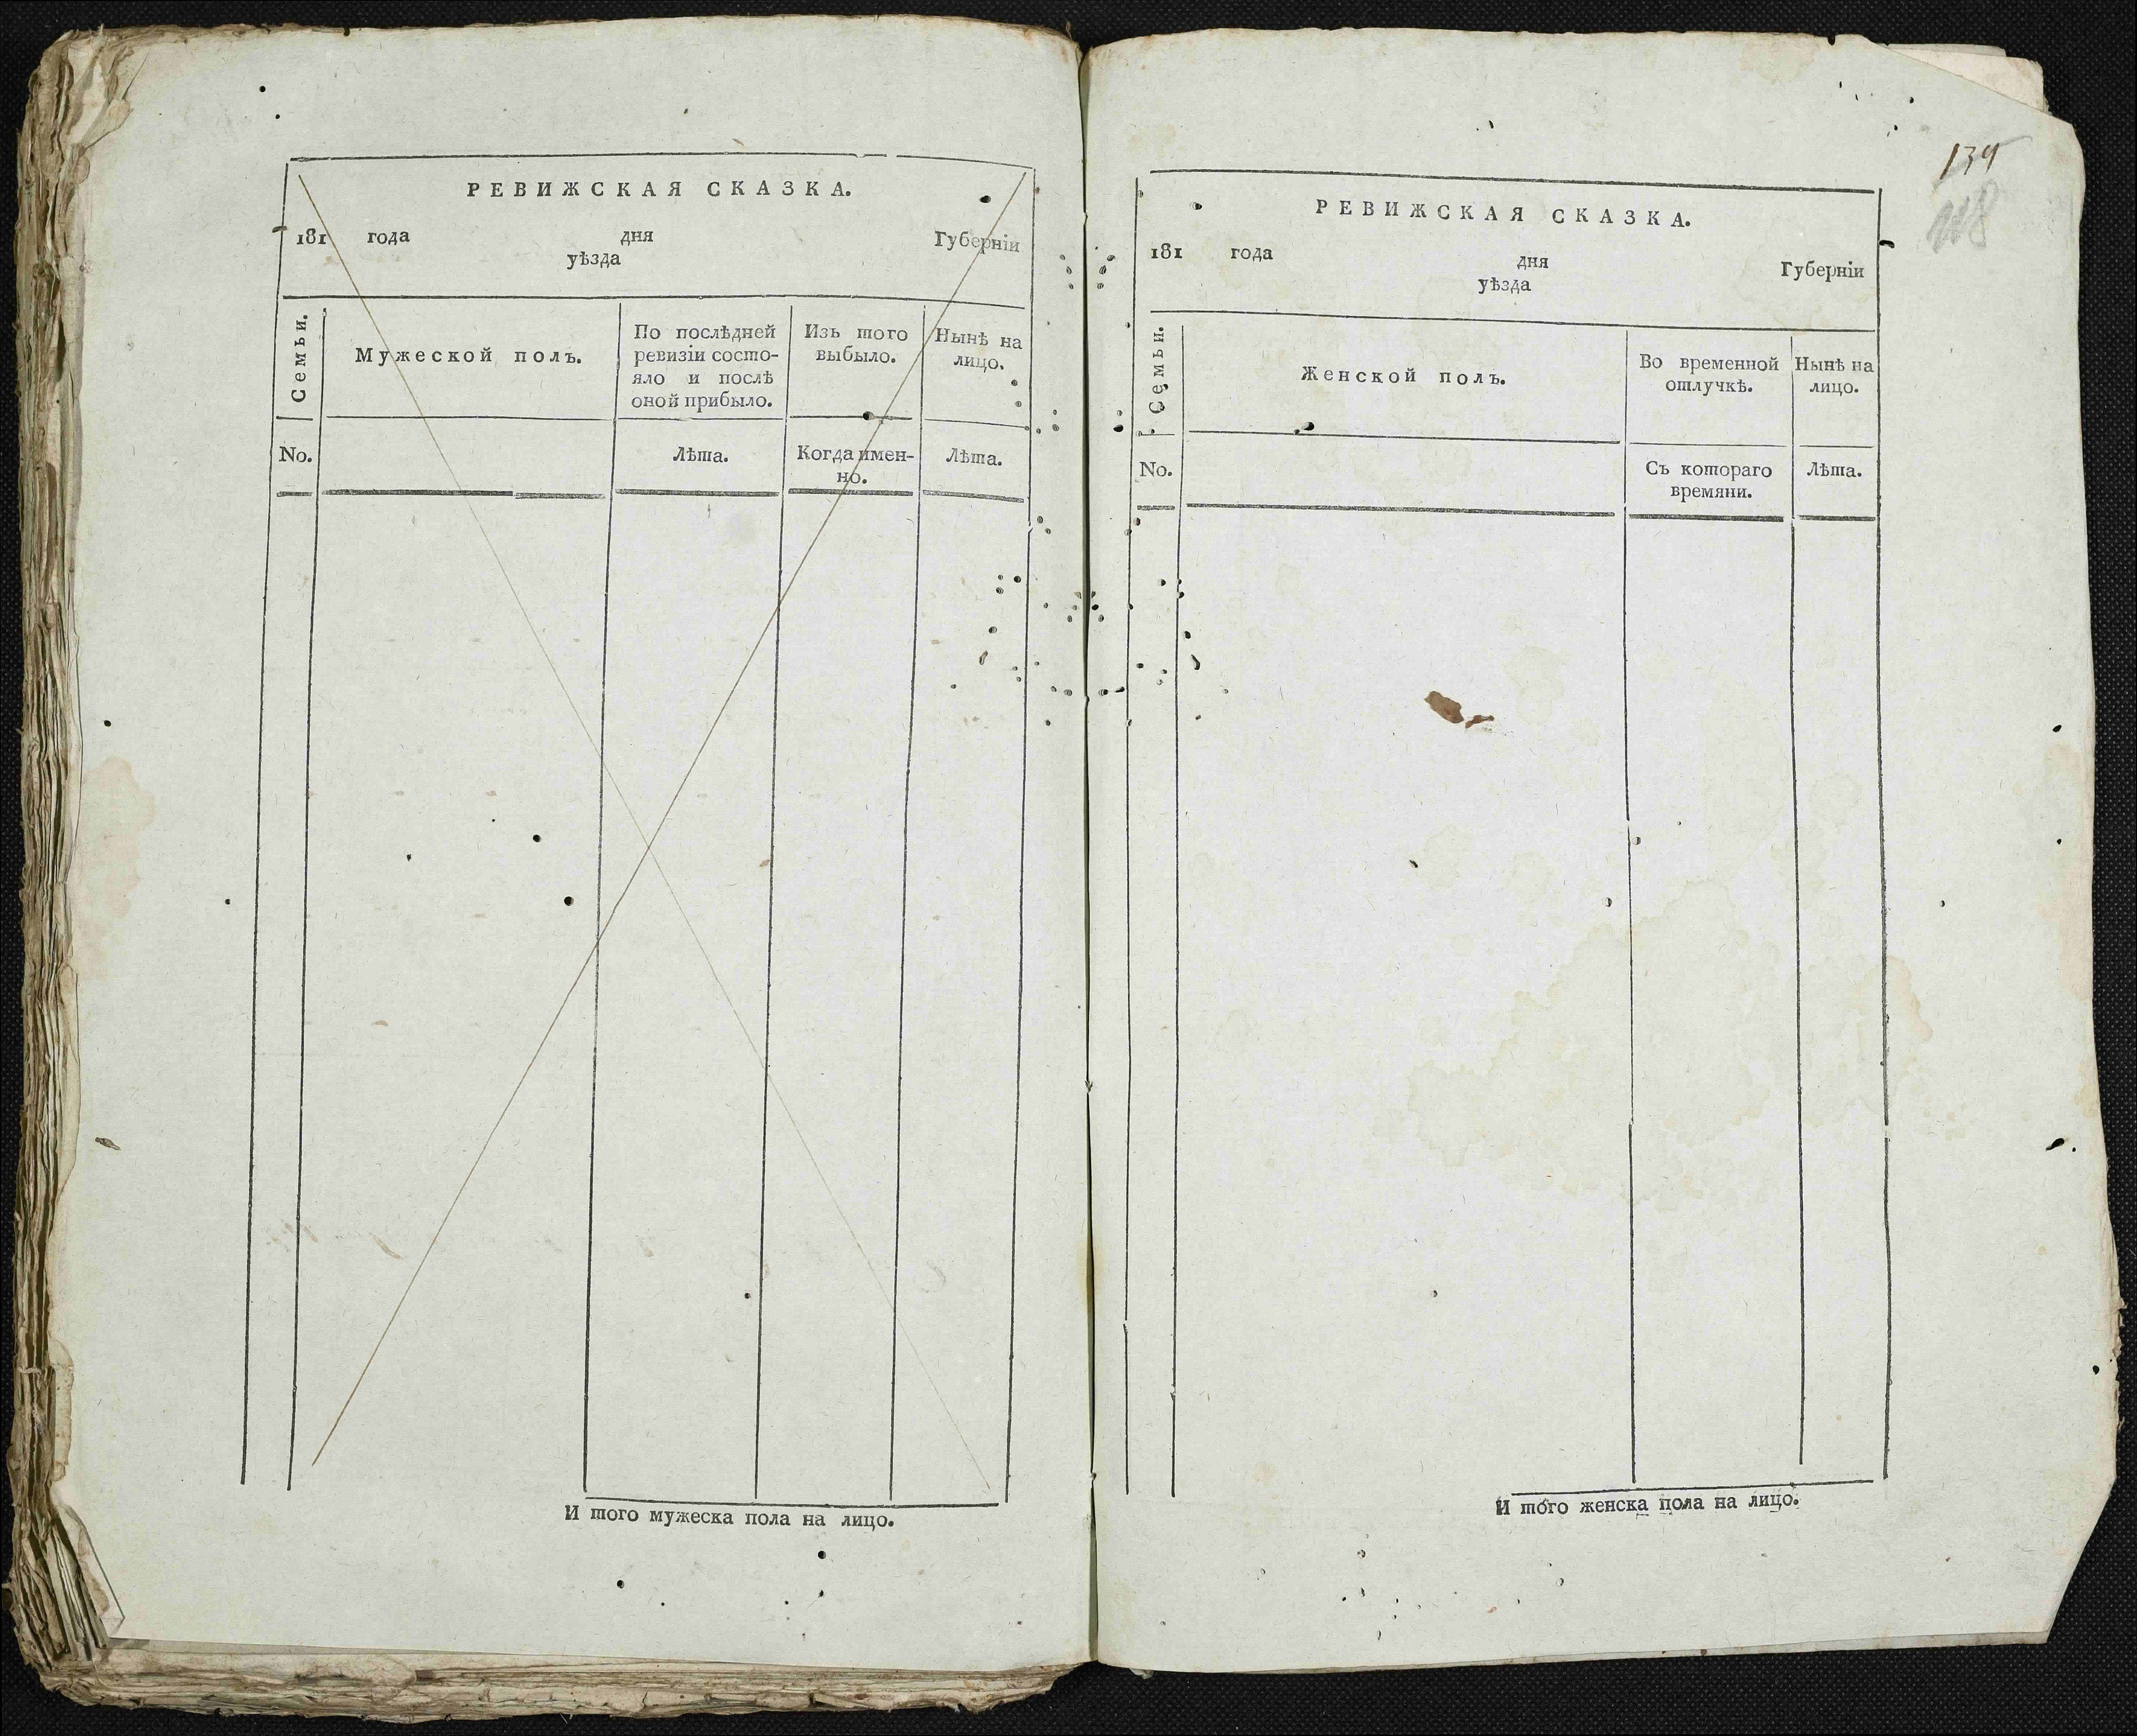 РЕВИЖСКАЯ СКАЗКА.
181 года дня Губерніи
уѣзда
Семьи.
Мужеской полъ.
По послѣдней
ревизіи состо-
яло и послѣ
оной прибыло.
Изъ того
выбыло.
Нынѣ на
лицо.
No.
Лѣта.
Когда имен-
но.
Лѣта.
И того мужеска пола на лицо.
134
РЕВИЖСКАЯ СКАЗКА.
181 года дня Губерніи
уѣзда
Семьи.
Женской полъ.
Во временной
отлучкѣ.
Нынѣ на
лицо.
No.
Съ котораго
времяни.
Лѣта.
И того женска пола на лицо.